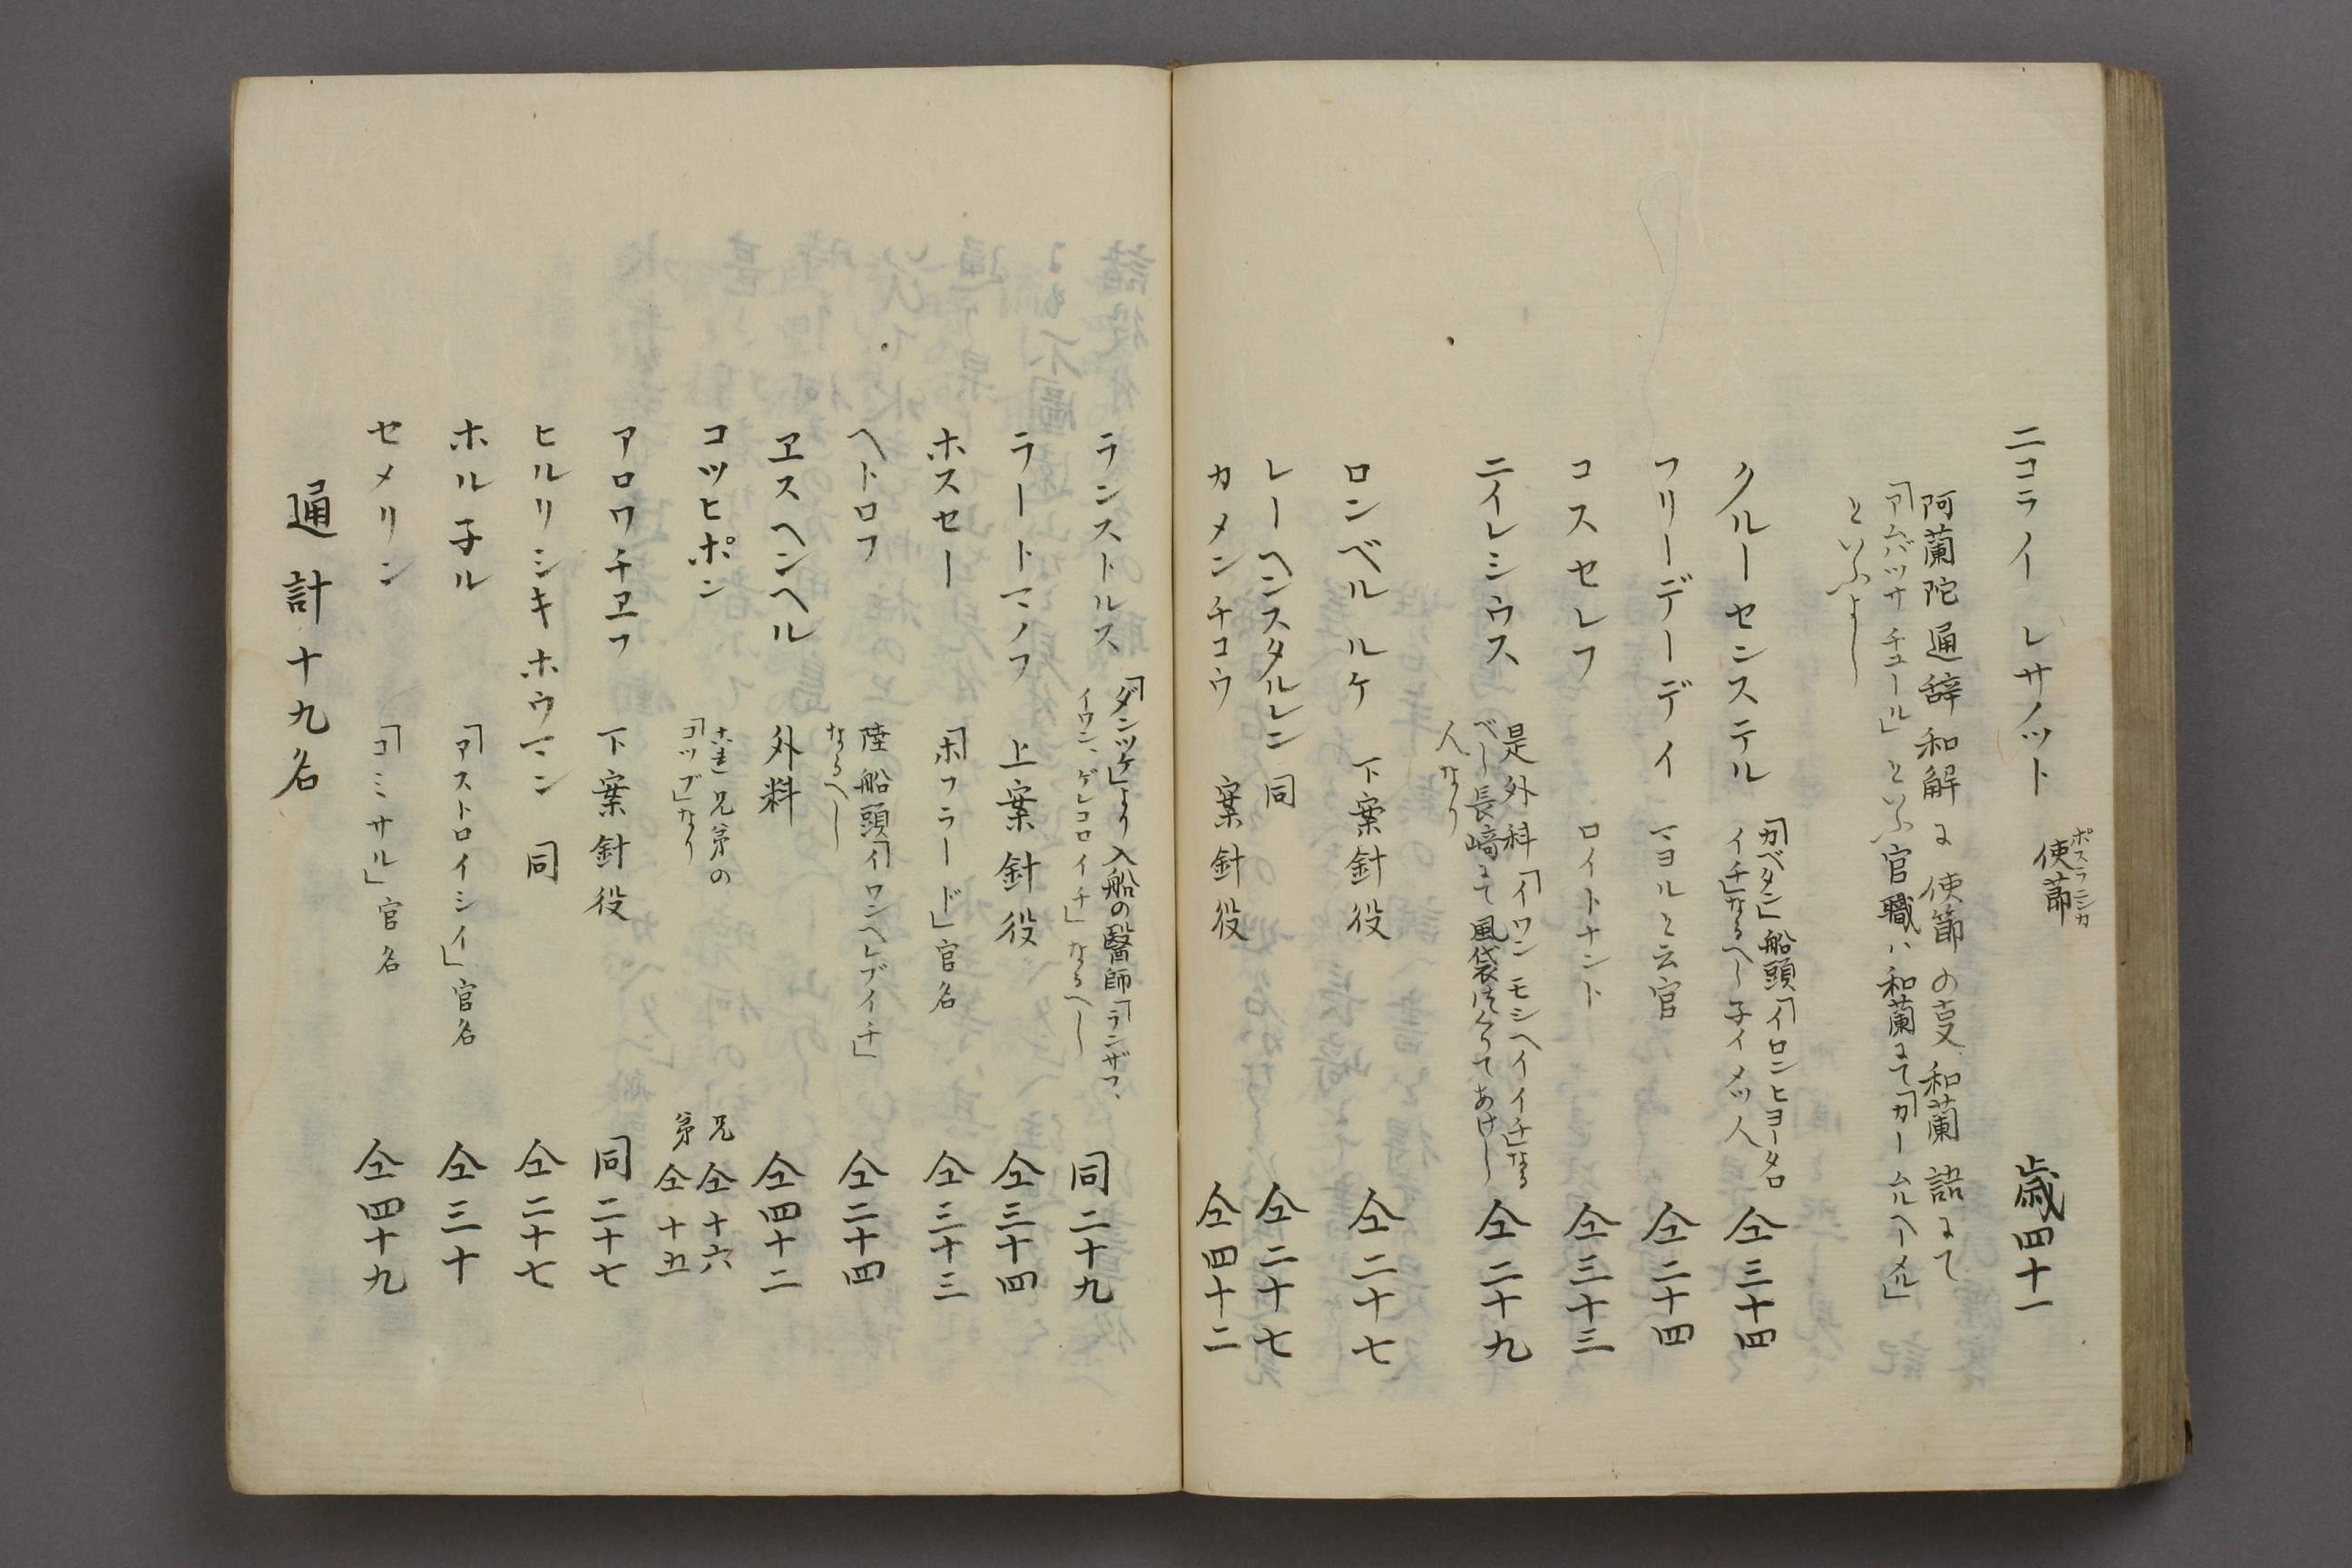 ニコライ レサノット 使節 歳四十一
ポスラニニカ
阿蘭陀通辞和解に使節の事和蘭語にて
「アムバツサチュール」といふ官職ハ和蘭にて「カームルヘーメル」
といふよし
クルーセンステル 「カペタン」船頭「イロンヒヨータロ 仝三十四
イチ」なるへし子イメツ人
フリーデーデイ マヨルと云官 仝二十四
コスセレフ ロイトナント 仝三十三
ニイレシウス 是外科「イワンモシヘイイチ」なる 仝二十九
べし長崎にて風袋つくりてあけし
人なり
ロンベルルケ 下案針役 仝二十七
レーヘンスタルレン 同 仝二十七
カメンチコウ 案針役 仝四十二
ランストルス 「ダンツケ」より入船の醫師「ランザフ、 同二十九
イワン、ゲレコロイチ」なるへし
ラートマノフ 上案針役 仝三十四
ホスセー 「ホフラード」官名 仝三十三
ヘトロフ 陸船頭「イワンヘレブイチ」 仝二十四
なるへし
ヱスヘンヘル 外料 仝四十二
コツヒポン 兄弟の 兄仝十六
「コツブ」なり 弟仝十五
アロワチヱフ 下案針役 同二十七
ヒルリシキホウマン 同 仝二十七
ホル子ル 「アストロイシイ」官名 仝三十
セメリン 「コミサル」官名 仝四十九
通計十九名